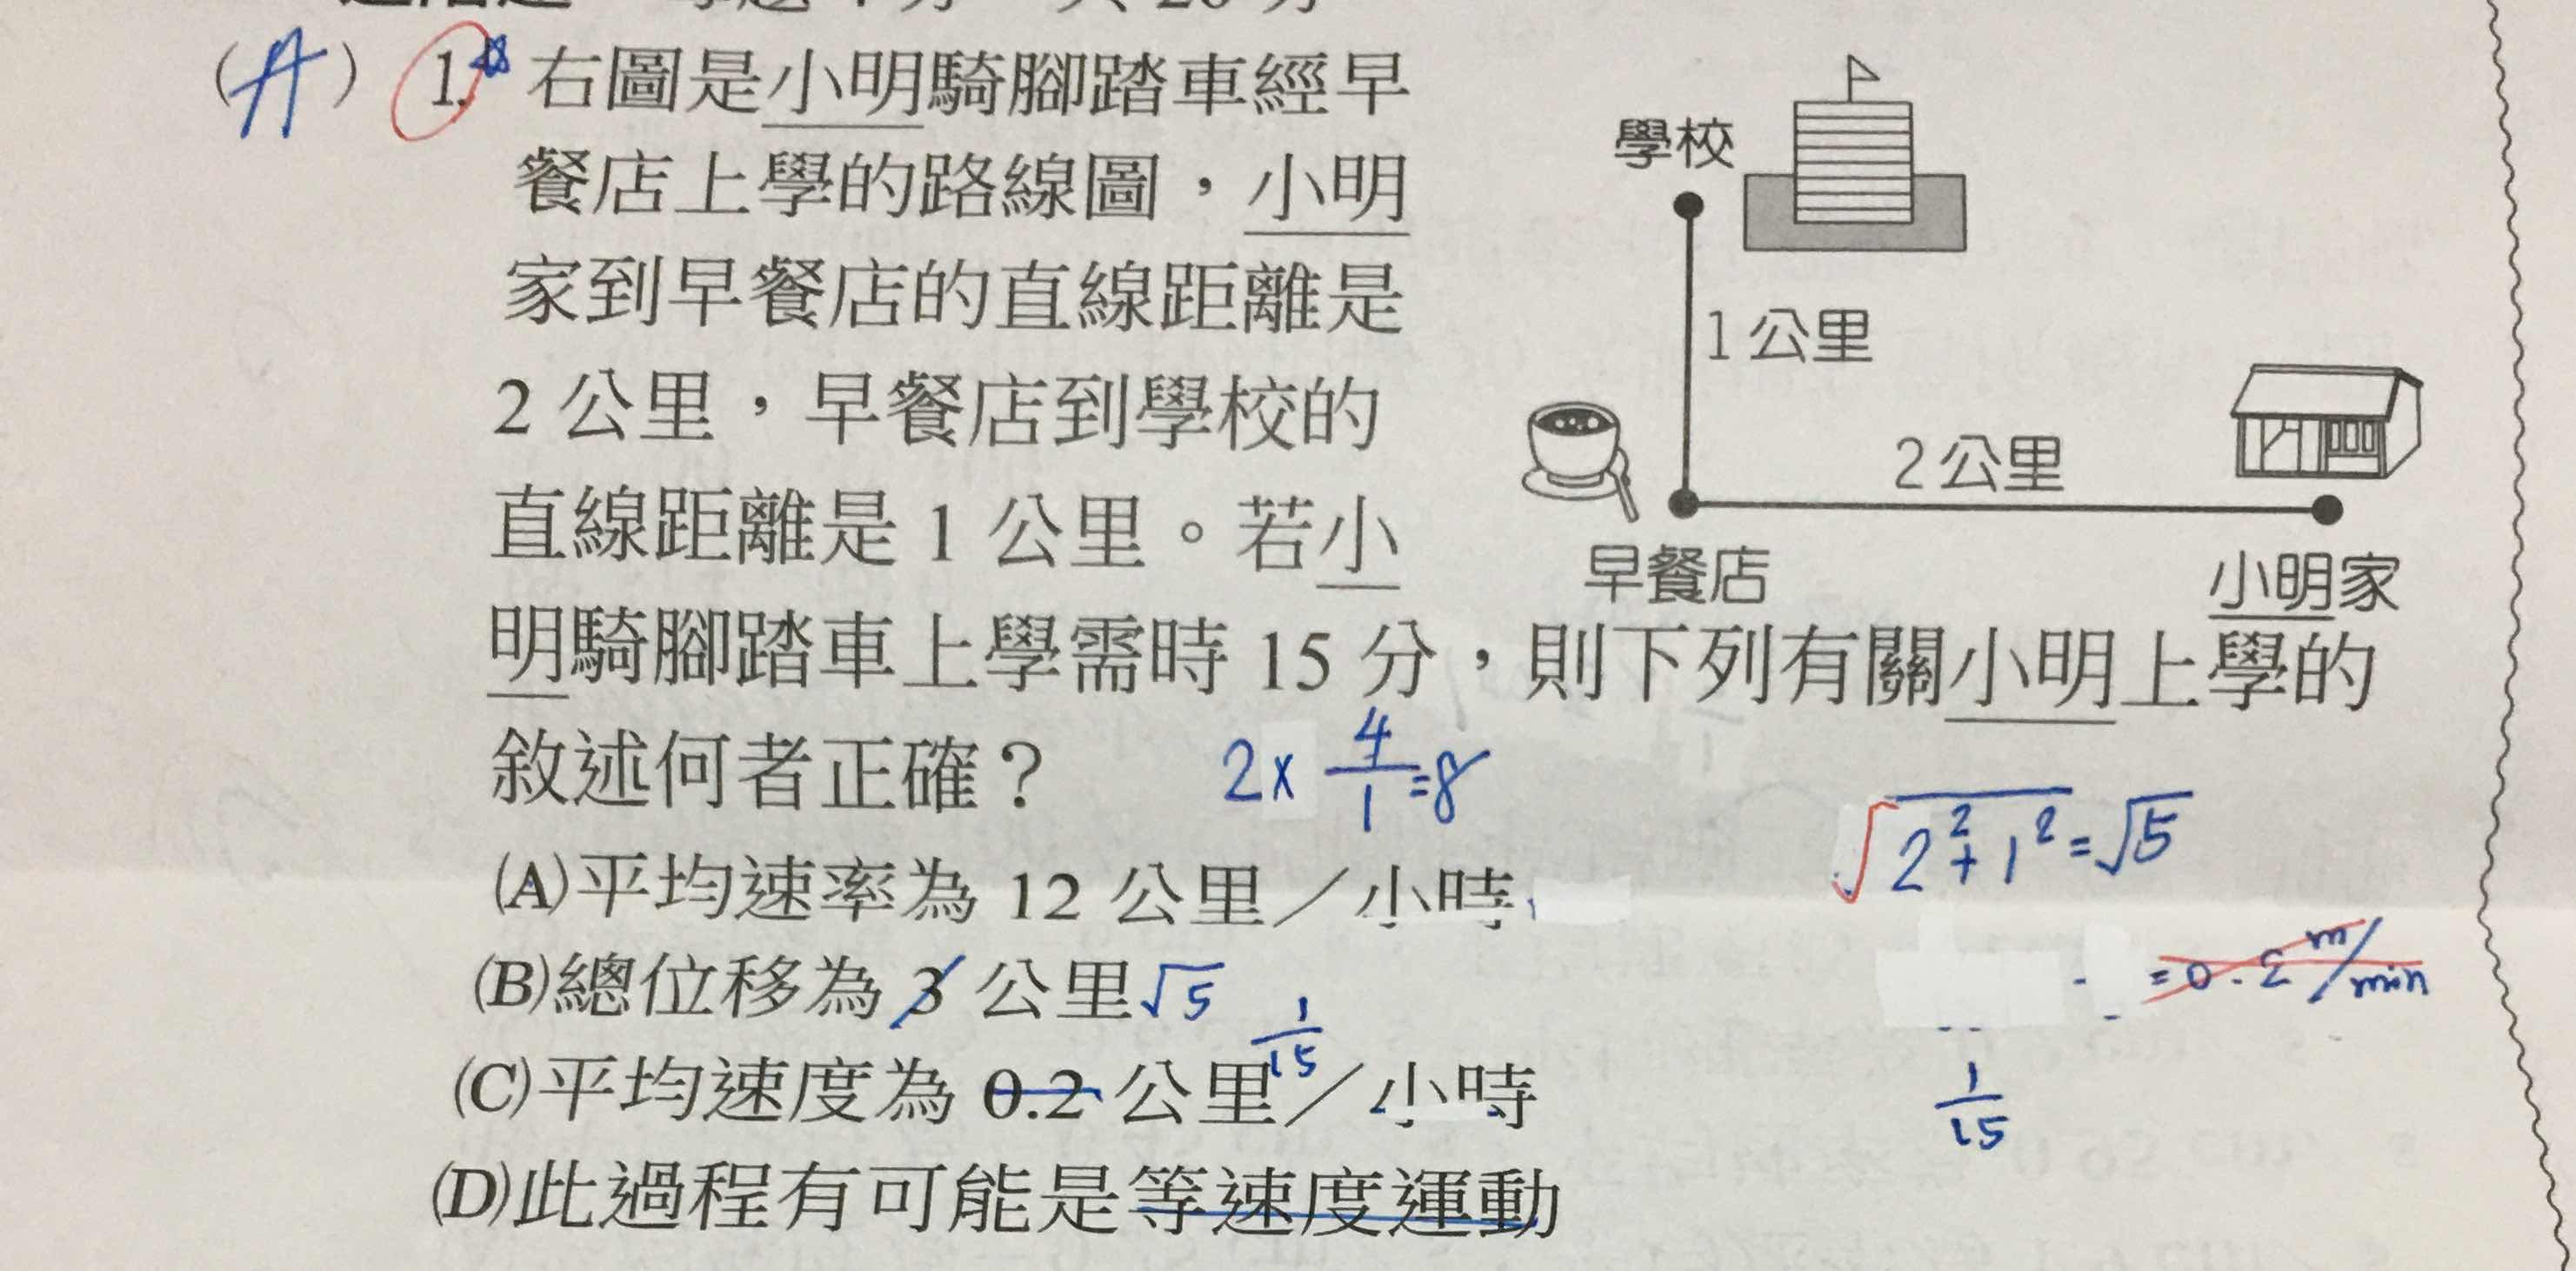 (A) 1. 右圖是小明騎腳踏車經早
餐店上學的路線圖,小明
家到早餐店的直線距離是
2 公里,早餐店到學校的
直線距離是 1 公里。若小
明騎腳踏車上學需時 15 分,則下列有關小明上學的
敘述何者正確?
2×4/1=8
(A)平均速率為 12 公里/小時
(B)總位移為 3 公里√5
1/15
(C)平均速度為 0.2 公里/小時
(D)此過程有可能是等速度運動
學校
1公里
2公里
早餐店
小明家
√2²+1²=√5
=0.2 m/min
1/15